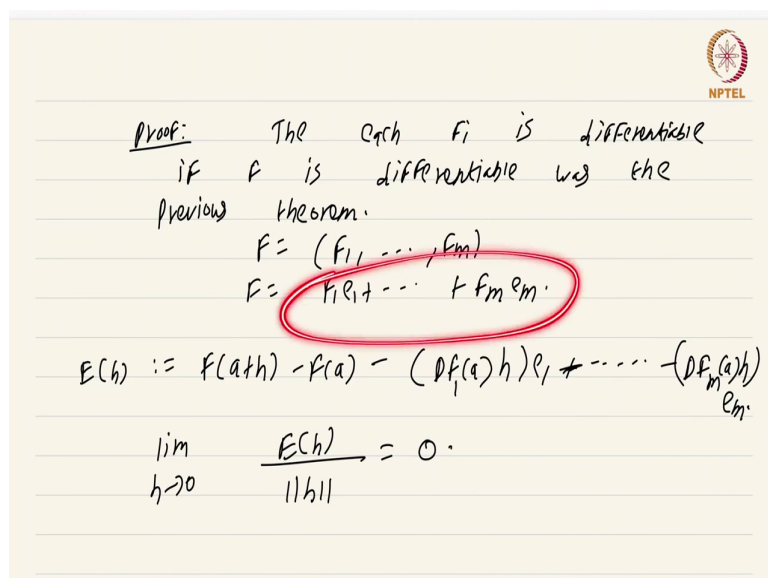 NPTEL
Proof: The each Fi is differentiable
if F is differentiable was the
previous theorem.
F = (F1, ---, Fm)
F = F1e1 + --- + Fm em.
E(h) := F(a+h) - F(a) - (DF1(a)h)e1 + ----- - (DFm(a)h)
em.
lim E(h) = 0.
h→0 ||h||